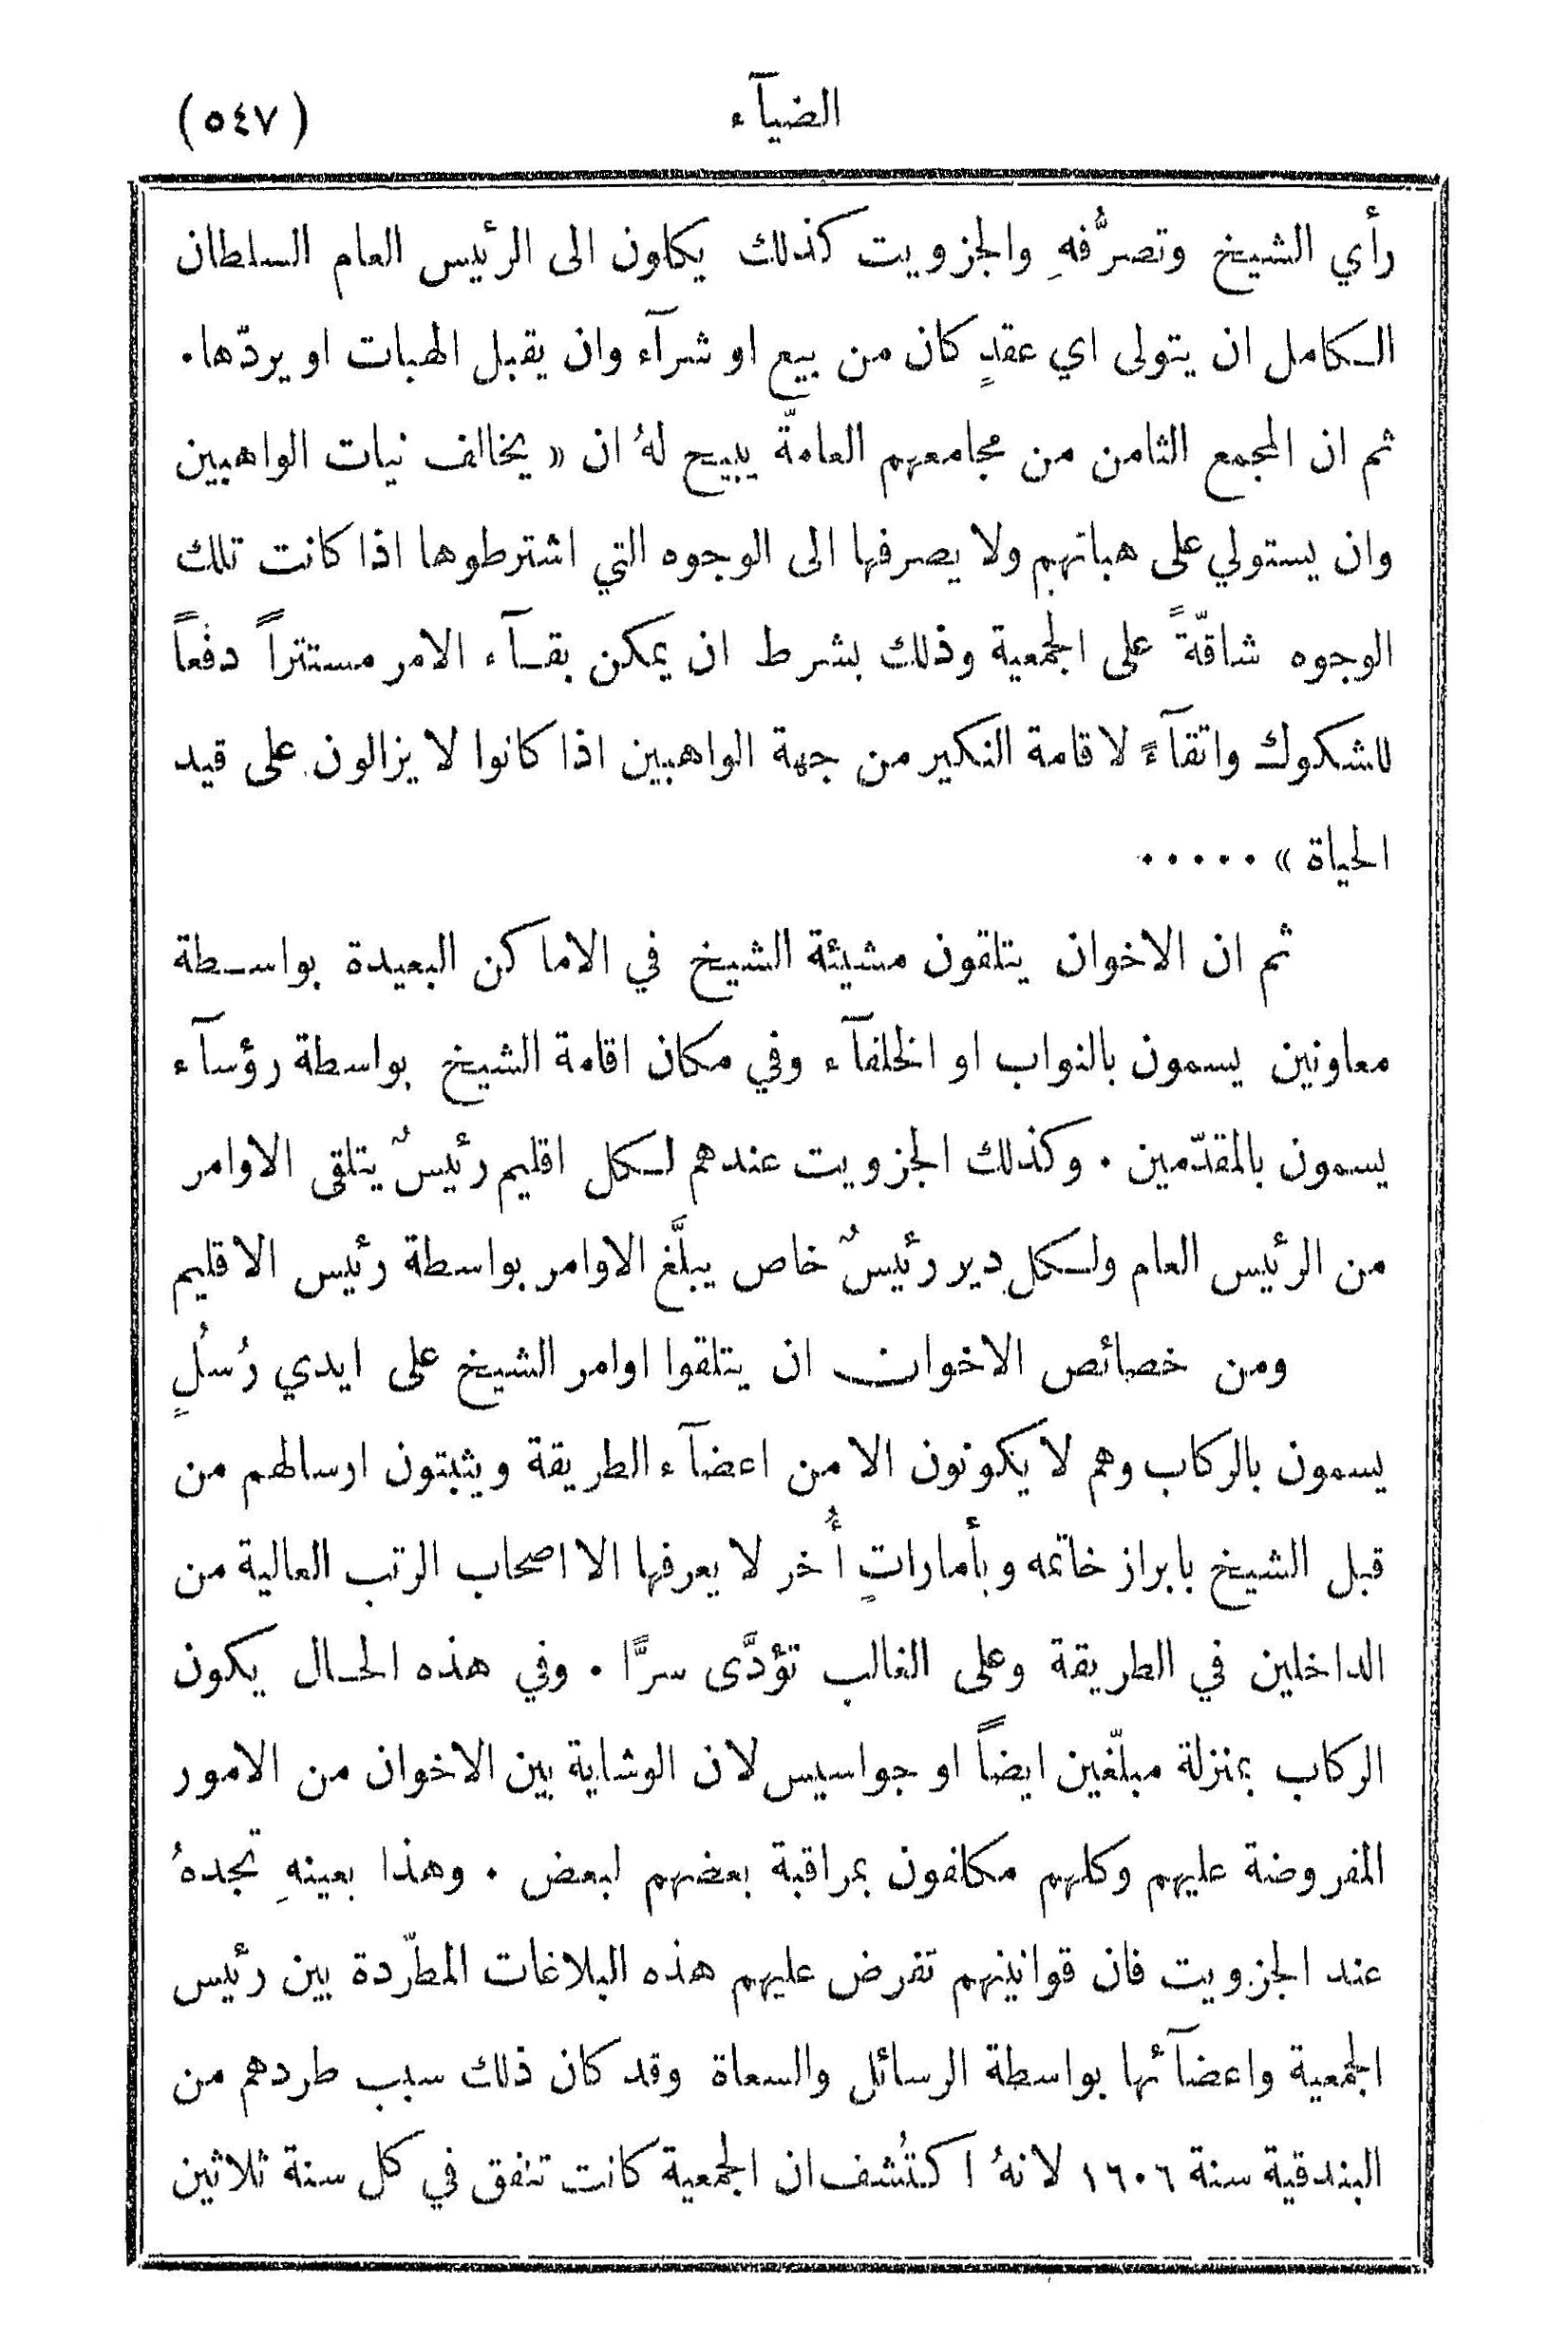 الضيآء
(٥٤٧)
رأي الشيخ وتصرُّفهِ والجزويت كذلك يكلون الى الرئيس العام السلطان
الكامل ان يتولى اي عقدٍ كان من بيع او شرآء وان يقبل الهبات او يردّها.
ثم ان المجمع الثامن من مجامعهم العامّة يبيح لهُ ان « يخالف نيات الواهبين
وان يستولي على هباتهم ولا يصرفها الى الوجوه التي اشترطوها اذا كانت تلك
الوجوه شاقّةً على الجمعية وذلك بشرط ان يمكن بقآء الامر مستتراً دفعاً
للشكوك واتقآءً لاقامة النكير من جهة الواهبين اذا كانوا لا يزالون على قيد
الحياة » . . . . .
ثم ان الاخوان يتلقون مشيئة الشيخ في الاماكن البعيدة بواسطة
معاونين يسمون بالنواب او الخلفآء وفي مكان اقامة الشيخ بواسطة رؤسآء
يسمون بالمقدّمين . وكذلك الجزويت عندهم لكل اقليم رئيسٌ يتلقى الاوامر
من الرئيس العام ولكل دير رئيسٌ خاص يبلَّغ الاوامر بواسطة رئيس الاقليم
ومن خصائص الاخوان ان يتلقوا اوامر الشيخ على ايدي رُسُلٍ
يسمون بالركاب وهم لا يكونون الا من اعضآء الطريقة ويثبتون ارسالهم من
قبل الشيخ بابراز خاتمه وبأماراتٍ أُخر لا يعرفها الا اصحاب الرتب العالية من
الداخلين في الطريقة وعلى الغالب تؤدَّى سرًّا . وفي هذه الحال يكون
الركاب بمنزلة مبلّغين ايضاً او جواسيس لان الوشاية بين الاخوان من الامور
المفروضة عليهم وكلهم مكلفون بمراقبة بعضهم لبعض . وهذا بعينهِ تجدهُ
عند الجزويت فان قوانينهم تفرض عليهم هذه البلاغات المطّردة بين رئيس
الجمعية واعضآئها بواسطة الرسائل والسعاة وقد كان ذلك سبب طردهم من
البندقية سنة ١٦٠٦ لانهُ اكتُشف ان الجمعية كانت تنفق في كل سنة ثلاثين